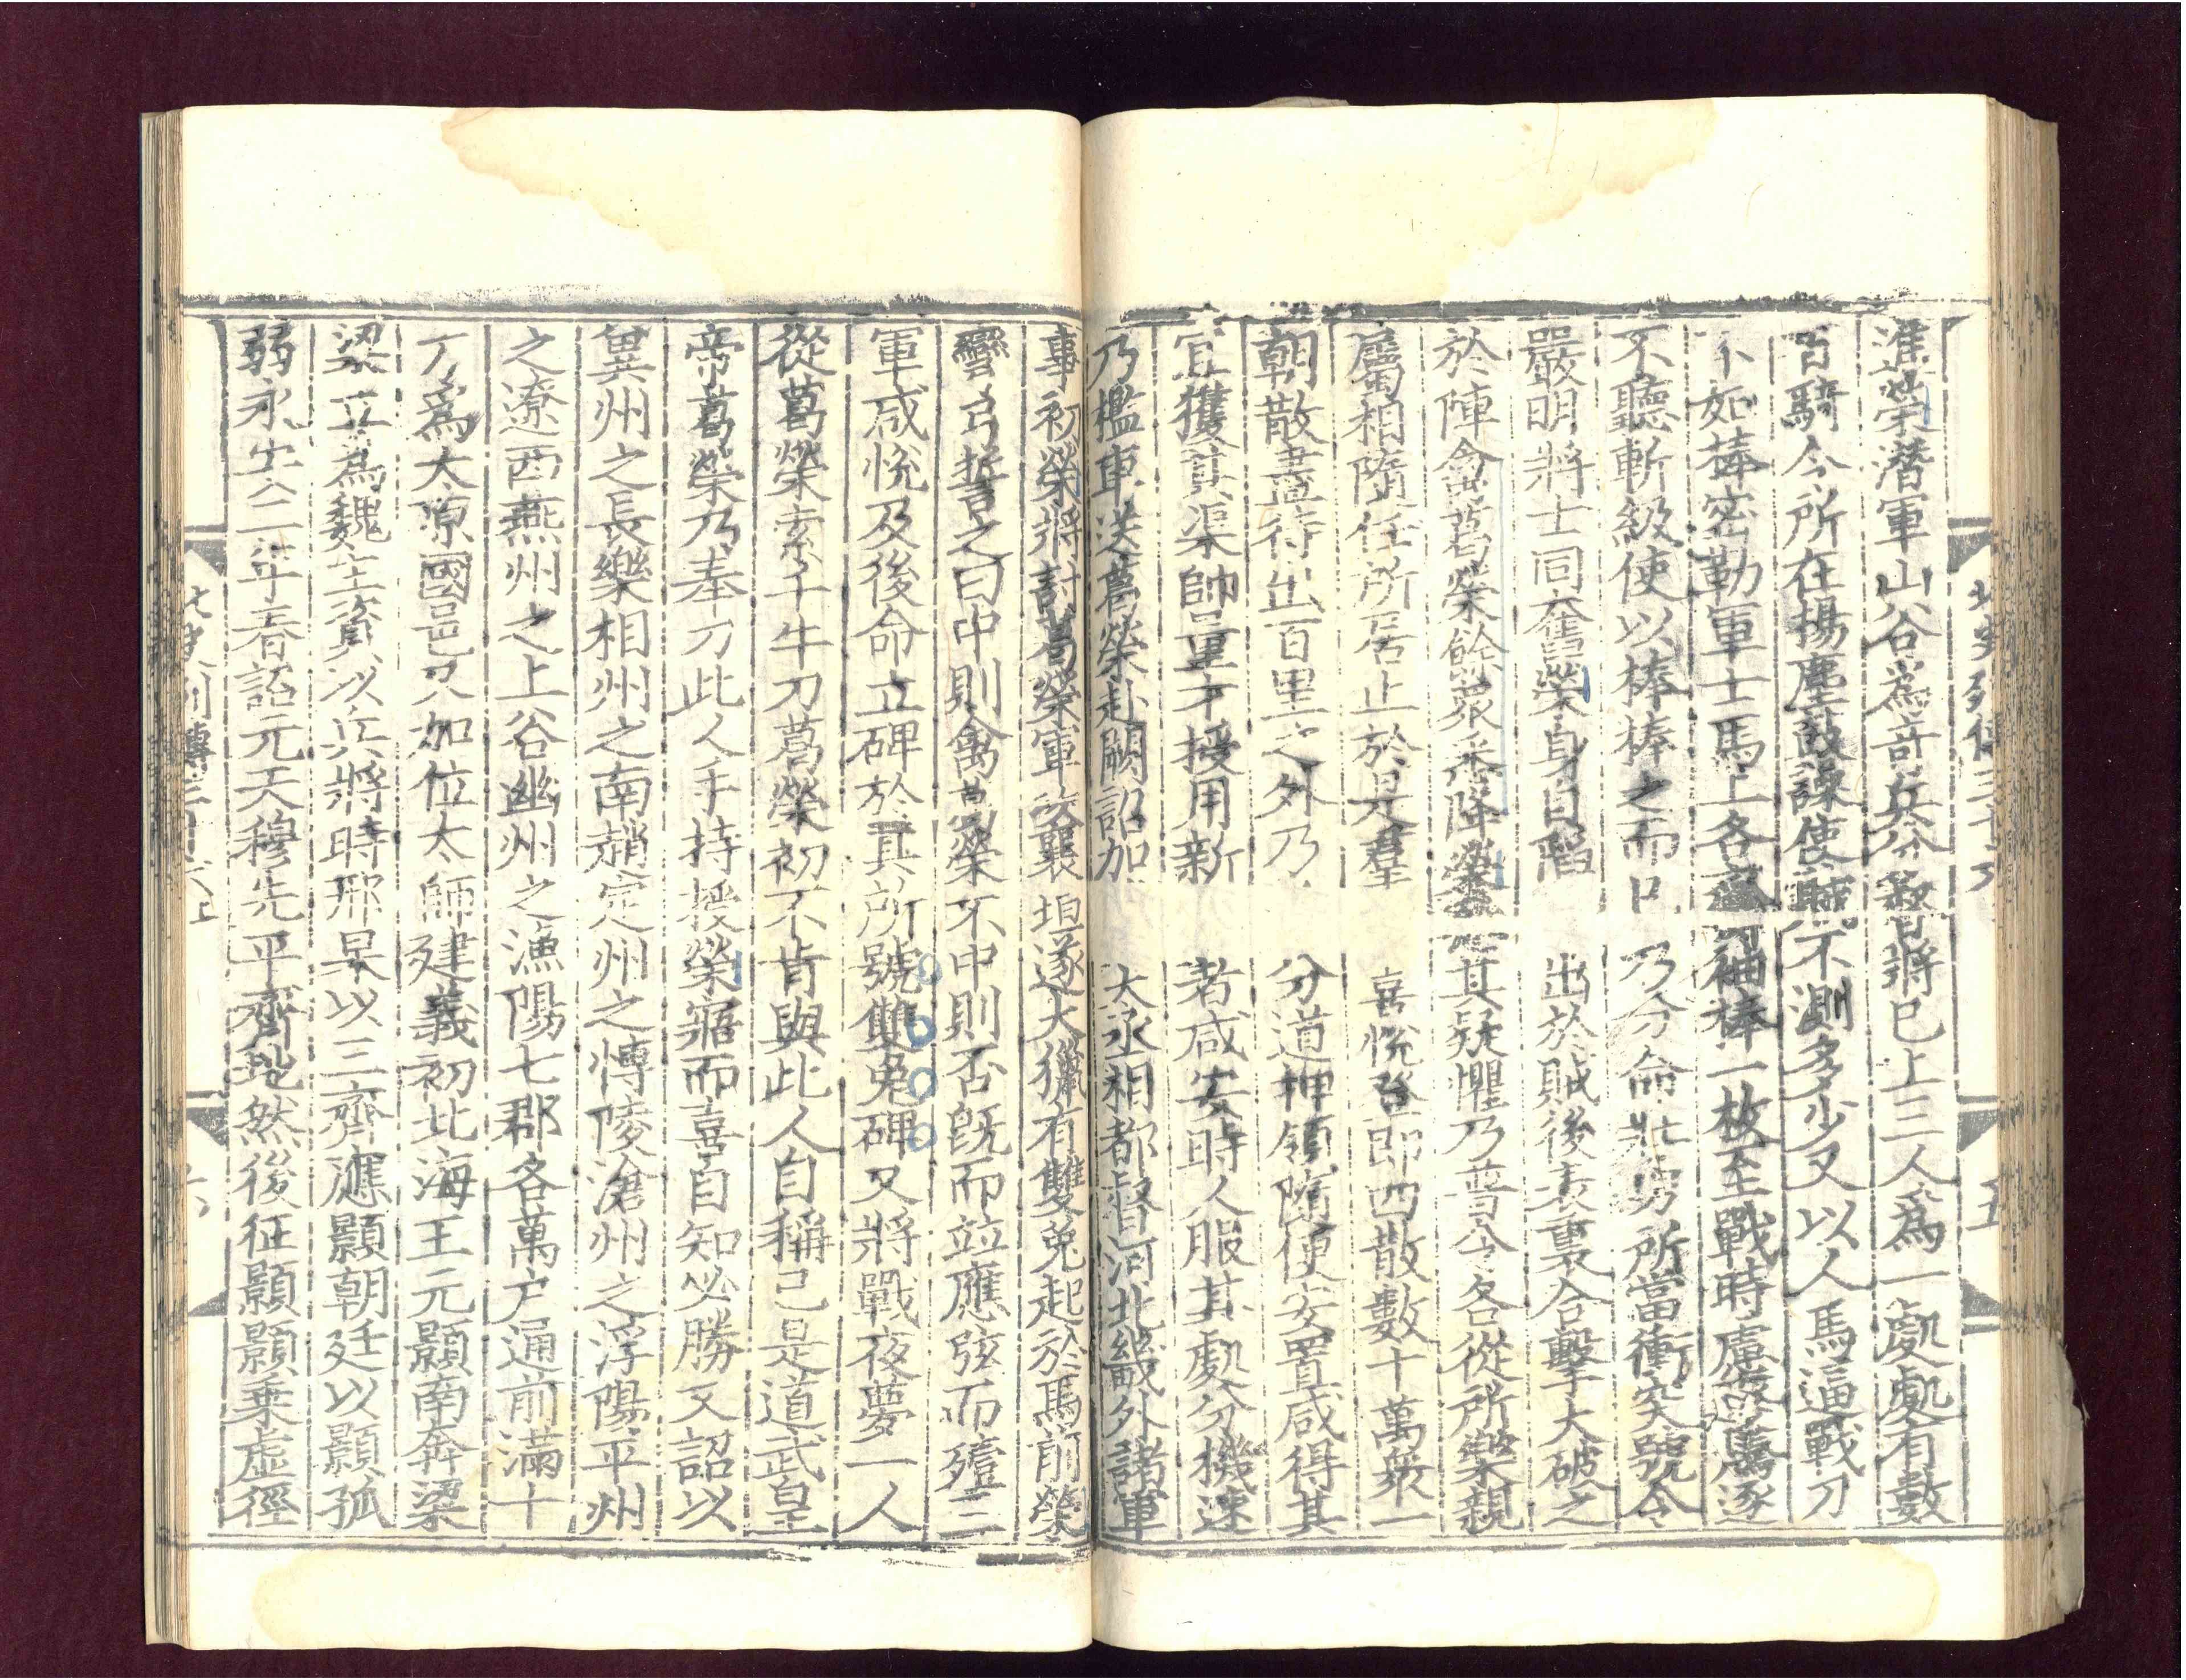 進榮潛軍山谷為奇兵分督將已上三人為一處處有數
百騎令所在揚塵鼓譟使賊不測多少又以人馬逼戰刀
不如棒密勒軍士馬上各齎袖棒一枚至戰時慮廢騰逐
不聽斬級使以棒棒之而已乃分命壯勇所當衝突號令
嚴明將士同奮榮身自陷出於賊後表裏合擊大破之
於陣禽葛榮餘衆悉降榮其疑懼乃普令各從所樂親
屬相隨任所居止於是羣喜悅登即四散數十萬衆一
朝散盡待出百里之外乃分道押領隨便安置咸得其
宜獲其渠帥量才授用新者咸安時人服其處分機速
乃檻車送葛榮赴闕詔加大丞相都督河北畿外諸軍
事初榮將討葛榮軍次襄垣遂大獵有雙兔起於馬前榮
彎弓誓之曰中則禽葛榮不中則否旣而竝應弦而殪三
軍咸悅及後命立碑於其所號雙兔碑又將戰夜夢一人
從葛榮索千牛刀葛榮初不肯與此人自稱己是道武皇
帝葛榮乃奉刀此人手持授榮寤而喜自知必勝又詔以
兾州之長樂相州之南趙定州之愽陵滄州之浮陽平州
之遼西燕州之上谷幽州之漁陽七郡各萬户通前滿十
万為太原國邑又加位太師建義初北海王元顥南奔梁
梁立為魏主資以兵將時邢杲以三齊應顥朝廷以顥孤
弱永安二年春詔元天穆先平齊地然後征顥顥乗虛徑
北史列傳三十六
五
北史列傳三十六上
六